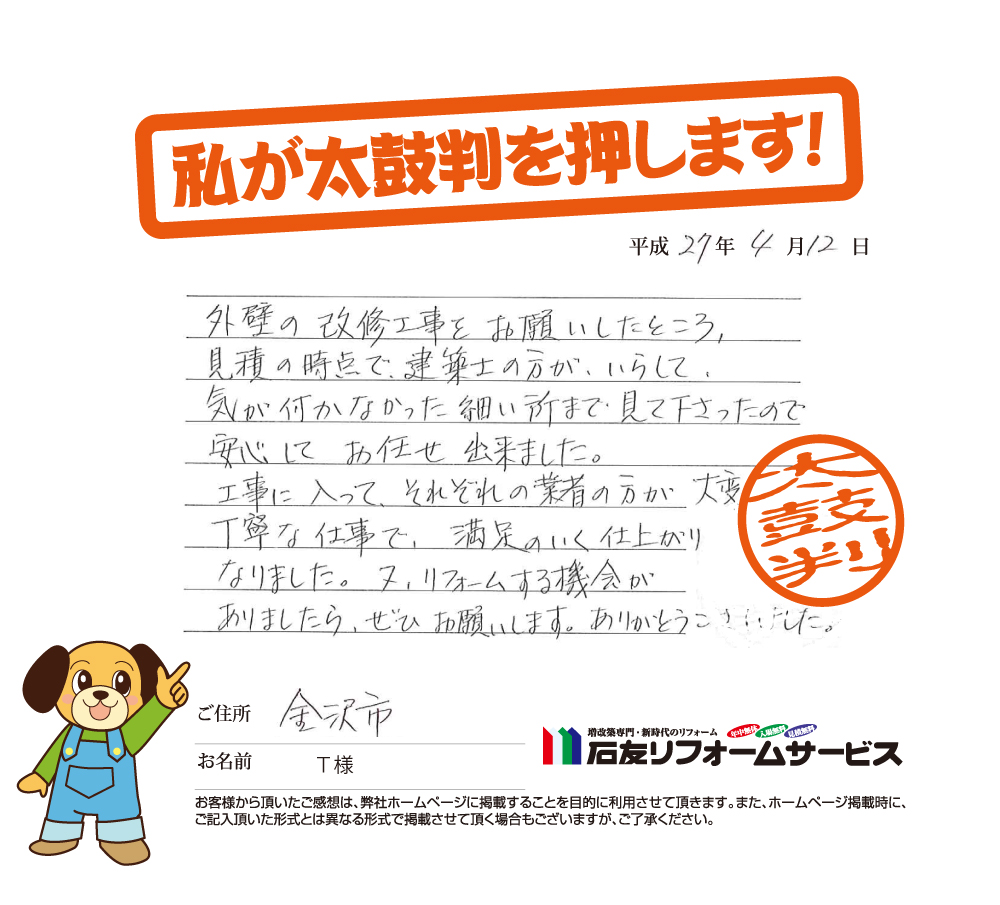 私が太鼓判を押します!
平成 27 年 4 月 12 日
外壁の改修工事を お願いしたところ,
見積の時点で、建築士の方が、いらして、
気が付かなかった細い所まで見て下さったので
安心して お任せ 出来ました。
工事に入って、それぞれの業者の方が 大変
丁寧な仕事で、満足のいく仕上がり
なりました。又、リフォームする機会が
ありましたら、ぜひお願いします。ありがとうございました。
太鼓判
ご住所 金沢市
お名前 T様
増改築専門・新時代のリフォーム 年中無休 入場無料 見積無料
石友リフォームサービス
お客様から頂いたご感想は、弊社ホームページに掲載することを目的に利用させて頂きます。また、ホームページ掲載時に、
ご記入頂いた形式とは異なる形式で掲載させて頂く場合もございますが、ご了承ください。